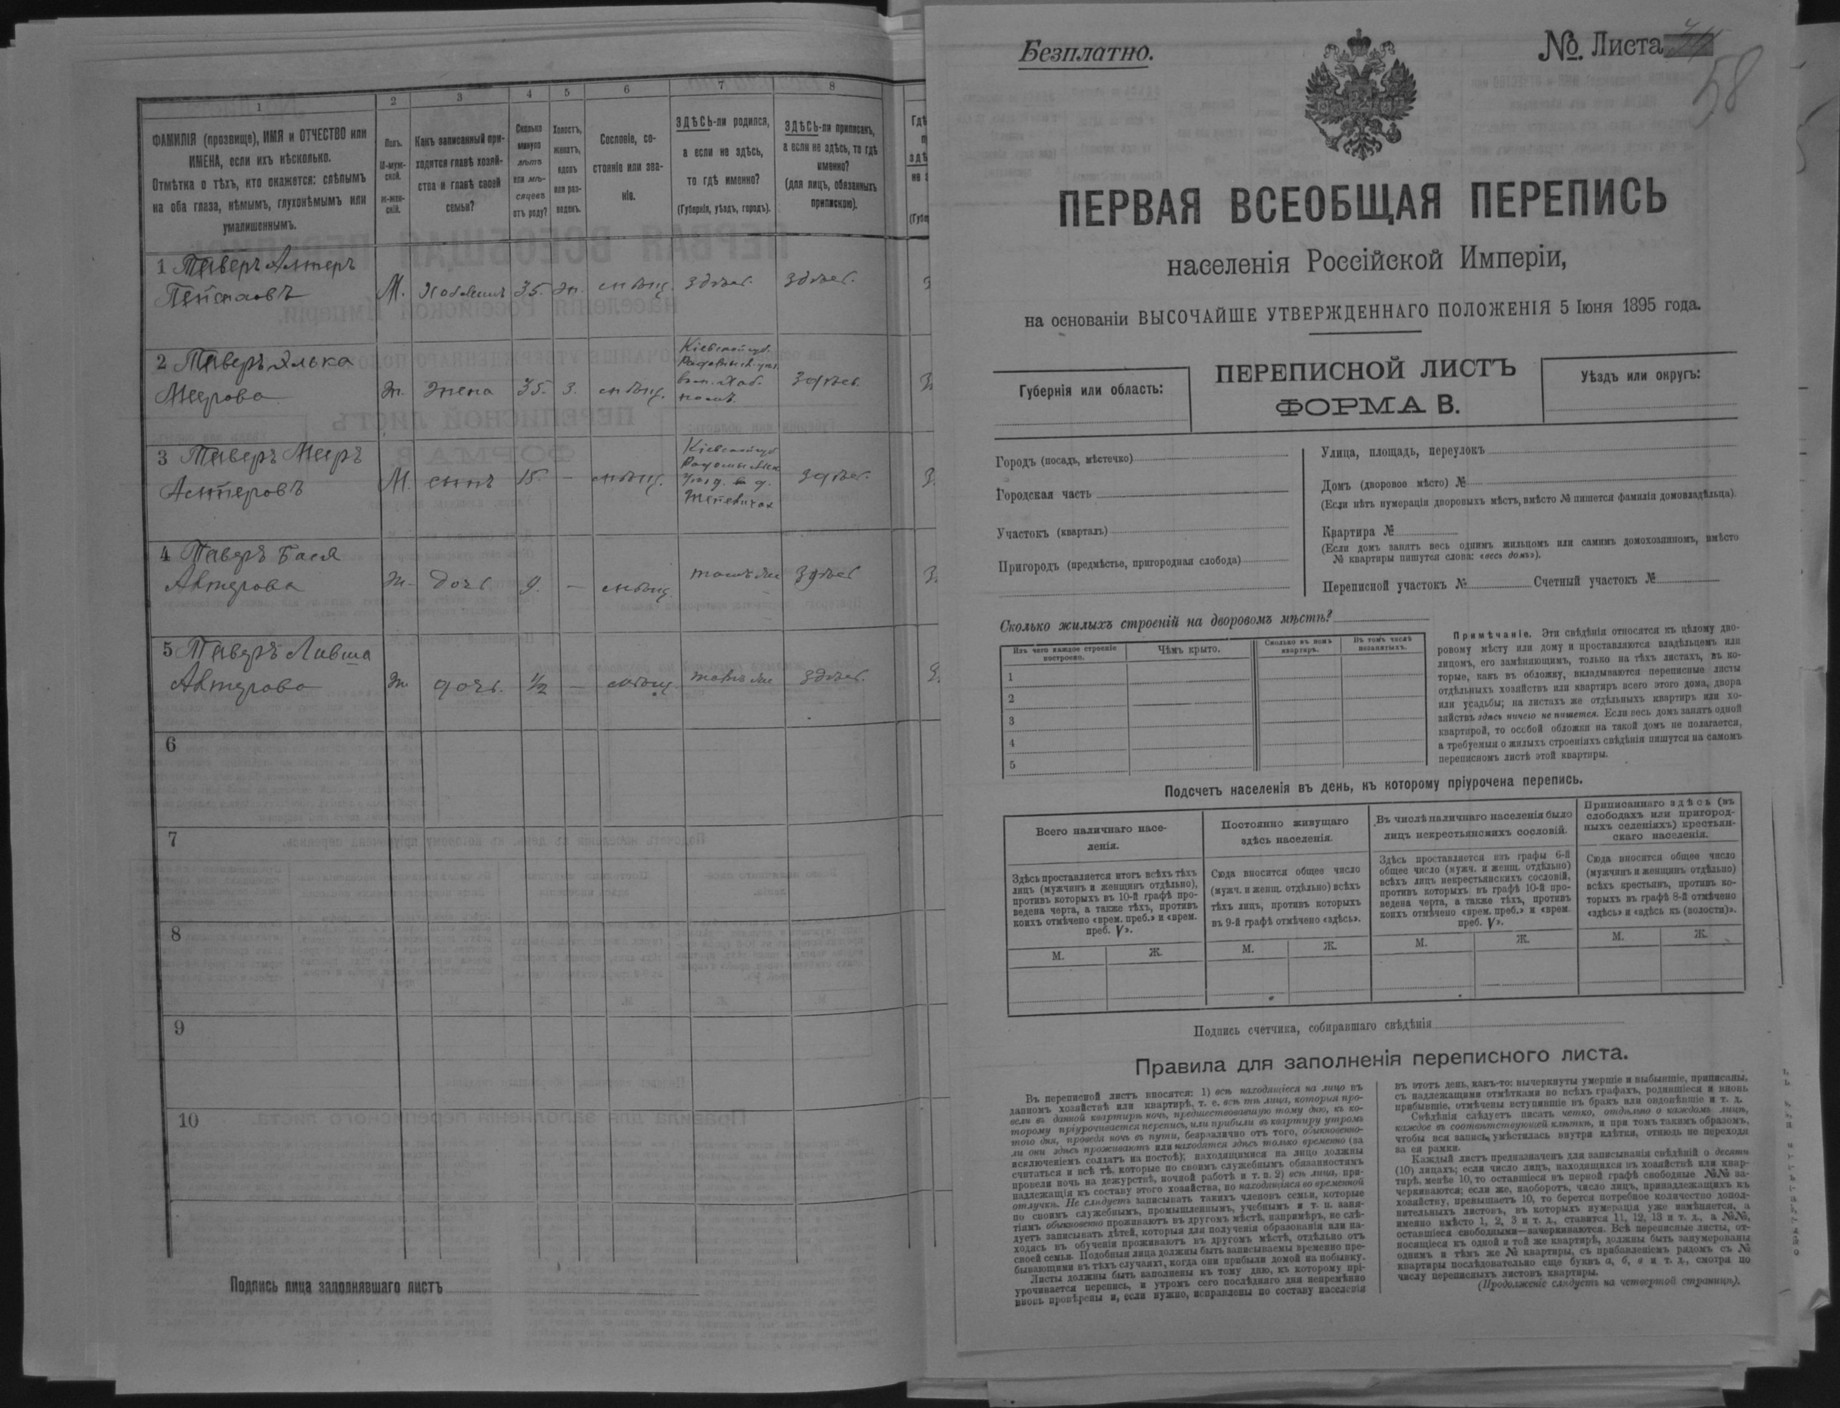 1
2
3
4
5
6
7
8
ФАМИЛІЯ (прозвище), ИМЯ и ОТЧЕСТВО или
ИМЕНА, если ихъ нѣсколько.
Отмѣтка о тѣхъ, кто окажется: слѣпымъ
на оба глаза, нѣмымъ, глухонѣмымъ или
умалишеннымъ.
Полъ.
М-муж-
ской.
ж-жен-
скій.
Какъ записанный при-
ходится главѣ хозяй-
ства и главѣ своей
семьи?
Сколько
минуло
лѣтъ
или мѣ-
сяцевъ
отъ роду?
Холостъ,
женатъ,
вдовъ
или раз-
веденъ.
Сословіе, со-
стояніе или зва-
ніе.
ЗДѢСЬ-ли родился,
а если не здѣсь,
то гдѣ именно?
(Губернія, уѣздъ, городъ).
ЗДѢСЬ-ли приписанъ,
а если не здѣсь, то гдѣ
именно?
(для лицъ, обязанныхъ
припискою).
1 Таверъ Аптеръ
М. 35. здѣсь. здѣсь.
2 Таверъ Элька
Меерова ж. жена 35. з. мѣщ. здѣсь.
Кіевской губ.
3 Таверъ Мееръ
М. сынъ 15. — мѣщ. здѣсь.
Кіевской губ
4 Таверъ Бася
Аптерова ж. дочь 9. — мѣщ. здѣсь
5 Таверъ Ливша
Аптерова ж дочь ½ — мѣщ. здѣсь.
6
7
8
9
10
Подпись лица заполнявшаго листъ
Безплатно.
№ Листа
58
ПЕРВАЯ ВСЕОБЩАЯ ПЕРЕПИСЬ
населенія Россійской Имперіи,
на основаніи ВЫСОЧАЙШЕ УТВЕРЖДЕННАГО ПОЛОЖЕНІЯ 5 Іюня 1895 года.
Губернія или область:
ПЕРЕПИСНОЙ ЛИСТЪ
ФОРМА В.
Уѣздъ или округъ:
Городъ (посадъ, мѣстечко)
Городская часть
Участокъ (кварталъ)
Пригородъ (предмѣстье, пригородная слобода)
Улица, площадь, переулокъ
Домъ (дворовое мѣсто) №
(Если нѣтъ нумераціи дворовыхъ мѣстъ, вмѣсто № пишется фамилія домовладѣльца).
Квартира №
(Если домъ занятъ весь однимъ жильцомъ или самимъ домохозяиномъ, вмѣсто
№ квартиры пишутся слова: «весь домъ»).
Переписной участокъ № Счетный участокъ №
Сколько жилыхъ строеній на дворовомъ мѣстѣ?
Изъ чего каждое строеніе
построено.
Чѣмъ крыто.
Сколько въ немъ
квартиръ.
Въ томъ числѣ
незанятыхъ.
1
2
3
4
5
Примѣчаніе. Эти свѣдѣнія относятся къ цѣлому дво-
ровому мѣсту или дому и проставляются владѣльцемъ или
лицомъ, его замѣняющимъ, только на тѣхъ листахъ, въ ко-
торые, какъ въ обложку, вкладываются переписные листы
отдѣльныхъ хозяйствъ или квартиръ всего этого дома, двора
или усадьбы; на листахъ же отдѣльныхъ квартиръ или хо-
зяйствъ здѣсь ничего не пишется. Если весь домъ занятъ одной
квартирой, то особой обложки на такой домъ не полагается,
а требуемыя о жилыхъ строеніяхъ свѣдѣнія пишутся на самомъ
переписномъ листѣ этой квартиры.
Подсчетъ населенія въ день, къ которому пріурочена перепись.
Всего наличнаго насе-
ленія.
Здѣсь проставляется итогъ всѣхъ тѣхъ
лицъ (мужчинъ и женщинъ отдѣльно),
противъ которыхъ въ 10-й графѣ про-
ведена черта, а также тѣхъ, противъ
коихъ отмѣчено «врем. преб.» и «врем.
преб. V».
М. Ж.
Постоянно живущаго
здѣсь населенія.
Сюда вносится общее число
(мужч. и женщ. отдѣльно) всѣхъ
тѣхъ лицъ, противъ которыхъ
въ 9-й графѣ отмѣчено «здѣсь».
М. Ж.
Въ числѣ наличнаго населенія было
лицъ некрестьянскихъ сословій.
Здѣсь проставляется изъ графы 6-й
общее число (мужч. и женщ. отдѣльно)
всѣхъ лицъ некрестьянскихъ сословій,
противъ которыхъ въ графѣ 10-й про-
ведена черта, а также тѣхъ, противъ
коихъ отмѣчено «врем. преб.» и «врем.
преб. V».
М. Ж.
Приписаннаго здѣсь (въ
слободахъ или пригород-
ныхъ селеніяхъ) крестьян-
скаго населенія.
Сюда вносится общее число
(мужчинъ и женщинъ отдѣльно)
всѣхъ крестьянъ, противъ ко-
торыхъ въ графѣ 8-й отмѣчено
«здѣсь» и «здѣсь къ (волости)».
М. Ж.
Подпись счетчика, собиравшаго свѣдѣнія
Правила для заполненія переписного листа.
Въ переписной листъ вносятся: 1) всѣ находящіеся на лицо въ
данномъ хозяйствѣ или квартирѣ, т. е. всѣ тѣ лица, которыя про-
вели въ данной квартирѣ ночь, предшествовавшую тому дню, къ ко-
торому пріурочивается перепись, или прибыли въ квартиру утромъ
того дня, проведя ночь въ пути, безразлично отъ того, обыкновенно-
ли они здѣсь проживаютъ или находятся здѣсь только временно (за
исключеніемъ солдатъ на постоѣ); находящимися на лицо должны
считаться и всѣ тѣ, которые по своимъ служебнымъ обязанностямъ
провели ночь на дежурствѣ, ночной работѣ и т. п. 2) всѣ лица, при-
надлежащія къ составу этого хозяйства, но находящіяся во временной
отлучкѣ. Не слѣдуетъ записывать такихъ членовъ семьи, которые
по своимъ служебнымъ, промышленнымъ, учебнымъ и т. п. заня-
тіямъ обыкновенно проживаютъ въ другомъ мѣстѣ, напримѣръ, не слѣ-
дуетъ записывать дѣтей, которыя для полученія образованія или на-
ходясь въ обученіи проживаютъ въ другомъ мѣстѣ, отдѣльно отъ
своей семьи. Подобныя лица должны быть записываемы временно пре-
бывающими въ тѣхъ случаяхъ, когда они прибыли домой на побывку.
Листы должны быть заполнены къ тому дню, къ которому прі-
урочивается перепись, и утромъ сего послѣдняго дня непремѣнно
вновь провѣрены и, если нужно, исправлены по составу населенія
въ этотъ день, какъ-то: вычеркнуты умершіе и выбывшіе, приписаны,
съ надлежащими отмѣтками во всѣхъ графахъ, родившіеся и вновь
прибывшіе, отмѣчены вступившіе въ бракъ или овдовѣвшіе и т. д.
Свѣдѣнія слѣдуетъ писать четко, отдѣльно о каждомъ лицѣ,
каждое въ соотвѣтствующей клѣткѣ, и при томъ такимъ образомъ,
чтобы вся запись умѣстилась внутри клѣтки, отнюдь не переходя
за ея рамки.
Каждый листъ предназначенъ для записыванія свѣдѣній о десяти
(10) лицахъ; если число лицъ, находящихся въ хозяйствѣ или квар-
тирѣ, менѣе 10, то оставшіеся въ первой графѣ свободные №№ за-
черкиваются; если же, наоборотъ, число лицъ, принадлежащихъ къ
хозяйству, превышаетъ 10, то берется потребное количество допол-
нительныхъ листовъ, въ которыхъ нумерація уже измѣняется, а
именно вмѣсто 1, 2, 3 и т. д., ставится 11, 12, 13 и т. д., а №№,
оставшіеся свободными—зачеркиваются. Всѣ переписные листы, от-
носящіеся къ одной и той же квартирѣ, должны быть занумерованы
однимъ и тѣмъ же № квартиры, съ прибавленіемъ рядомъ съ №
квартиры послѣдовательно еще буквъ а, б, в и т. д., смотря по
числу переписныхъ листовъ квартиры.
(Продолженіе слѣдуетъ на четвертой страницѣ).